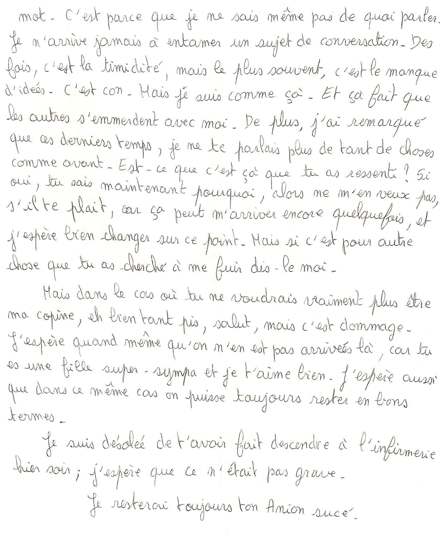 mot. C'est parce que je ne sais même pas de quoi parler.
Je n'arrive jamais à entamer un sujet de conversation. Des
fois, c'est la timidité, mais le plus souvent, c'est le manque
d'ideés. C'est con. Mais je suis comme ça. Et ça fait que
les autres s'emmerdent avec moi. De plus, j'ai remarqué
que ces derniers temps, je ne te parlais plus de tant de choses
comme avant. Est-ce que c'est ça que tu as ressenti? Si
oui, tu sais maintenant pourquoi, alors ne m'en veux pas,
s'il te plait, car ça peut m'arriver encore quelquefois, et
j'espère bien changer sur ce point. Mais si c'est pour autre
chose que tu as cherché à me fuir dis-le moi.
Mais dans le cas où tu ne voudrais vraiment plus être
ma copine, eh bien tant pis, salut, mais c'est dommage.
J'espère quand même qu'on n'en est pas arrivées là, car tu
es une fille super-sympa et je t'aime bien. J'espère aussi
que dans ce même cas on puisse toujours rester en bons
termes.
Je suis désolée de t'avoir fait descendre à l'infirmerie
hier soir; j'espère que ce n'était pas grave.
Je resterai toujours ton Anion sucé.